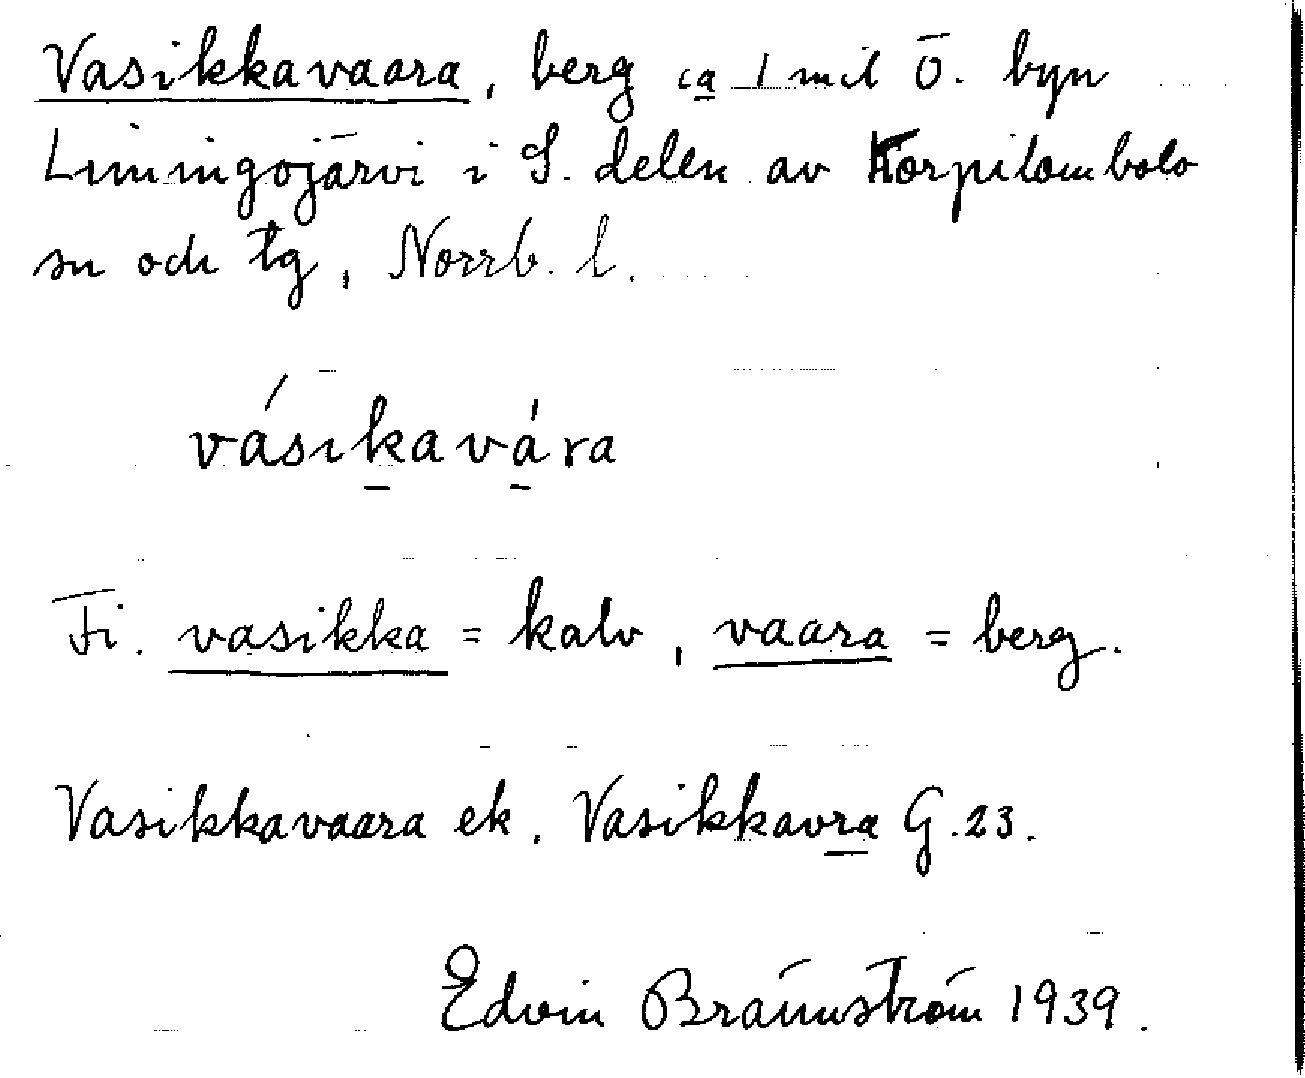 Vasikkavaara, berg ca 1 mil Ö. byn
Liningojärvi i S. delen av Korpilombolo
sn och tg, Norrb. l.
vásikavára
Fi. vasikka = kalv, vaara = berg.
Vasikkavaara ek. Vasikkavra G.23.
Edvin Brännström 1939.